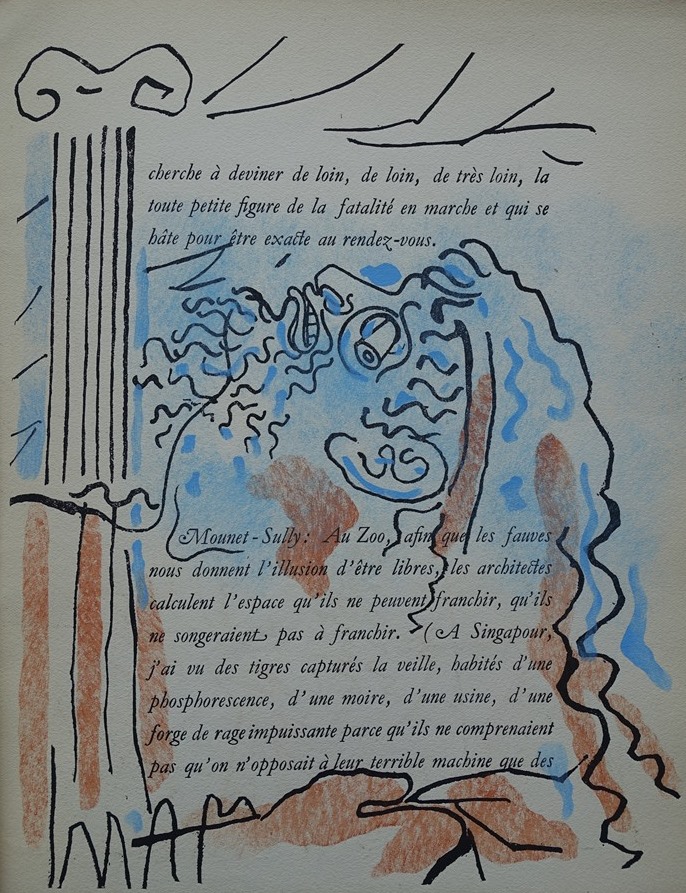 cherche à deviner de loin, de loin, de très loin, la
toute petite figure de la fatalité en marche et qui se
hâte pour être exacte au rendez-vous.
Mounet-Sully: Au Zoo, afin que les fauves
nous donnent l'illusion d'être libres, les architectes
calculent l'espace qu'ils ne peuvent franchir, qu'ils
ne songeraient pas à franchir. (A Singapour,
j'ai vu des tigres capturés la veille, habités d'une
phosphorescence, d'une moire, d'une usine, d'une
forge de rage impuissante parce qu'ils ne comprenaient
pas qu'on n'opposait à leur terrible machine que des